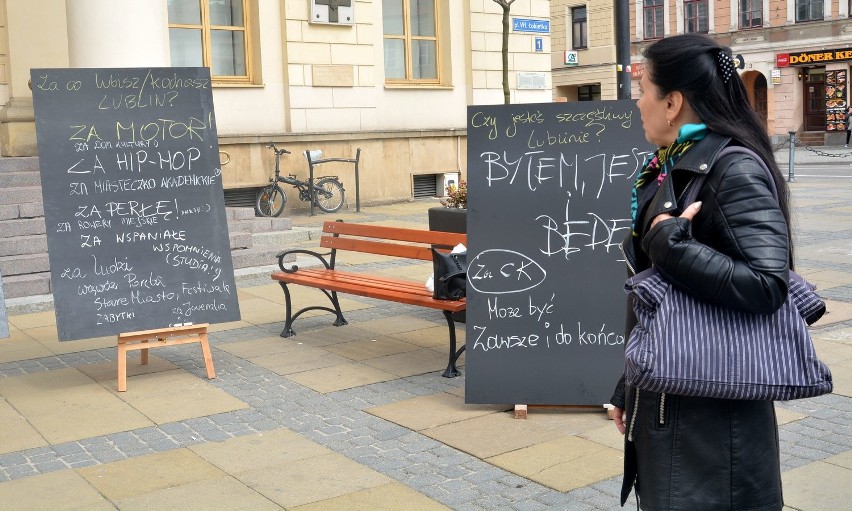 Za co lubisz/kochasz
LUBLIN?
ZA MOTOR!
ZA DOM KULTURY!
ZA HIP-HOP
ZA MIASTECZKO AKADEMICKIE
ZA PERŁĘ!
ZA ROWERY MIEJSKIE
ZA WSPANIAŁE
WSPOMNIENIA
(STUDIA!)
Za ludzi
Stare Miasto, Festiwale
ZABYTKI
Czy jesteś szczęśliwy
w Lublinie?
BYŁEM, JEST
i
BĘDĘ
Za CK
Może być
Zawsze i do końca
pl. Wł. Łokietka
1
DÖNER KE